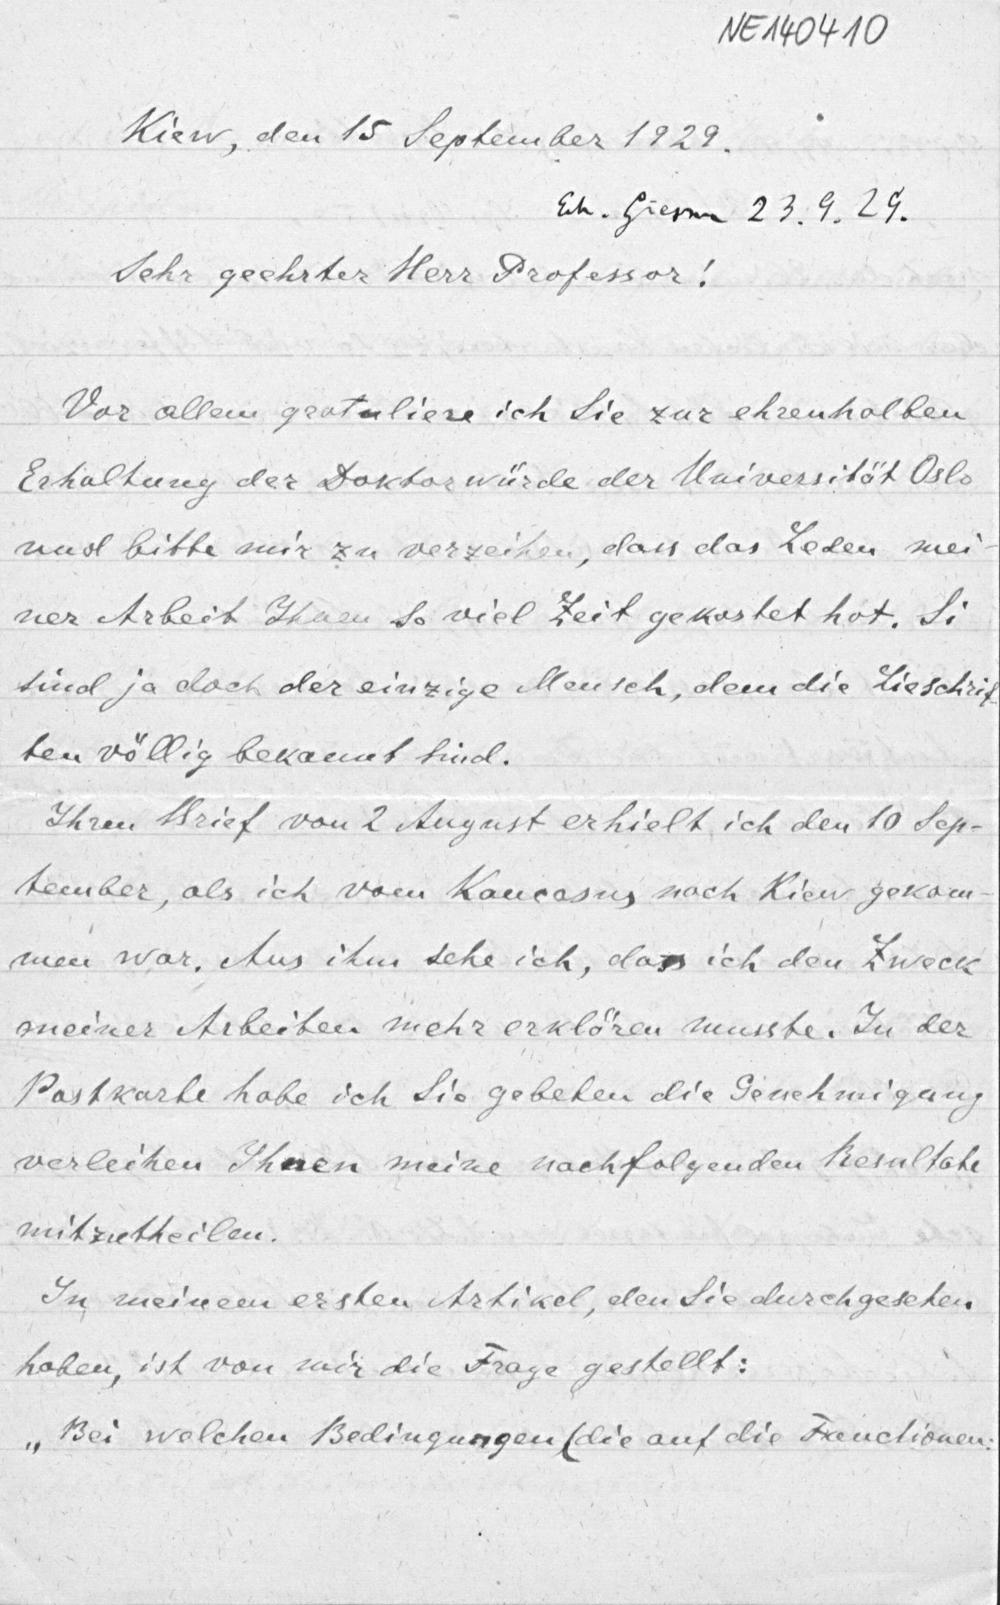 NE140410
Kiew, den 15 September 1929.
Erh. Giessen 23.9.29.
Sehr geehrter Herr Professor!
Vor allem gratuliere ich Sie zur ehrenhalben
Erhaltung der Doktorwürde der Universität Oslo
und bitte mir zu verzeihen, dass das Lesen mei-
ner Arbeit Ihnen so viel Zeit gekostet hat. Si
sind ja doch der einzige Mensch, dem die Lieschrif-
ten völlig bekannt sind.
Ihren Brief von 2 August erhielt ich den 10 Sep-
tember, als ich vom Kaucasus nach Kiew gekom-
men war. Aus ihm sehe ich, dass ich den Zweck
meiner Arbeiten mehr erklären musste. In der
Postkarte habe ich Sie gebeten die Genehmigung
verleihen Ihnen meine nachfolgenden Resultate
mitzutheilen.
In meinem ersten Artikel, den Sie durchgesehen
haben, ist von mir die Frage gestellt:
„Bei welchen Bedingungen (die auf die Functionen: